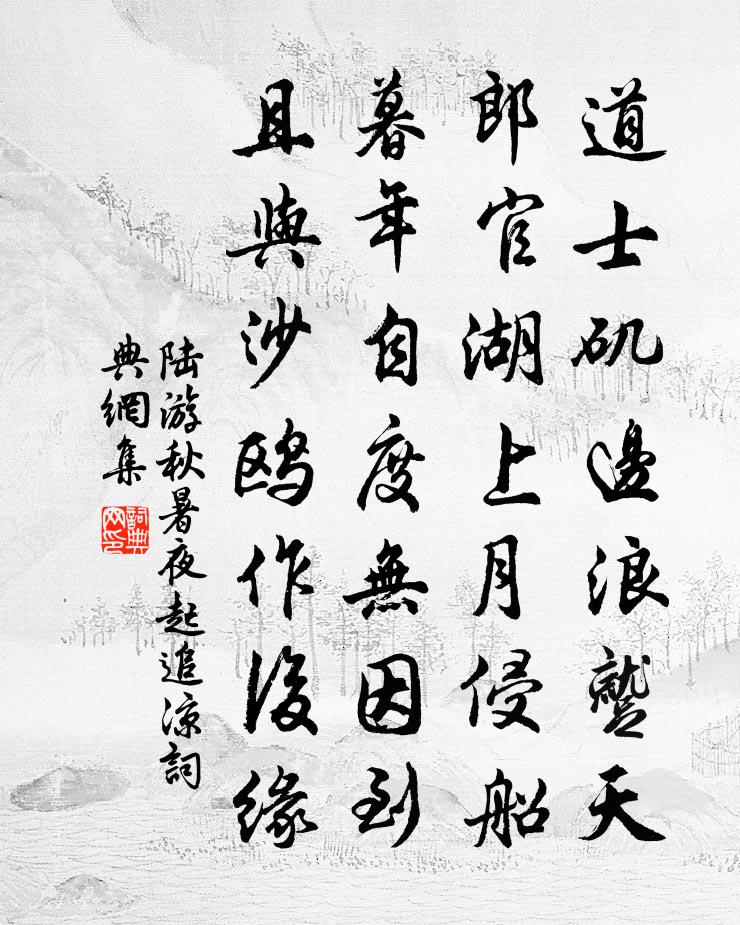 道士矶邊浪蹙天
郎官湖上月侵船
暮年自度無因到
且與沙鸥作後缘
陆游秋暑夜起追涼詞
典網集
詞典
网印